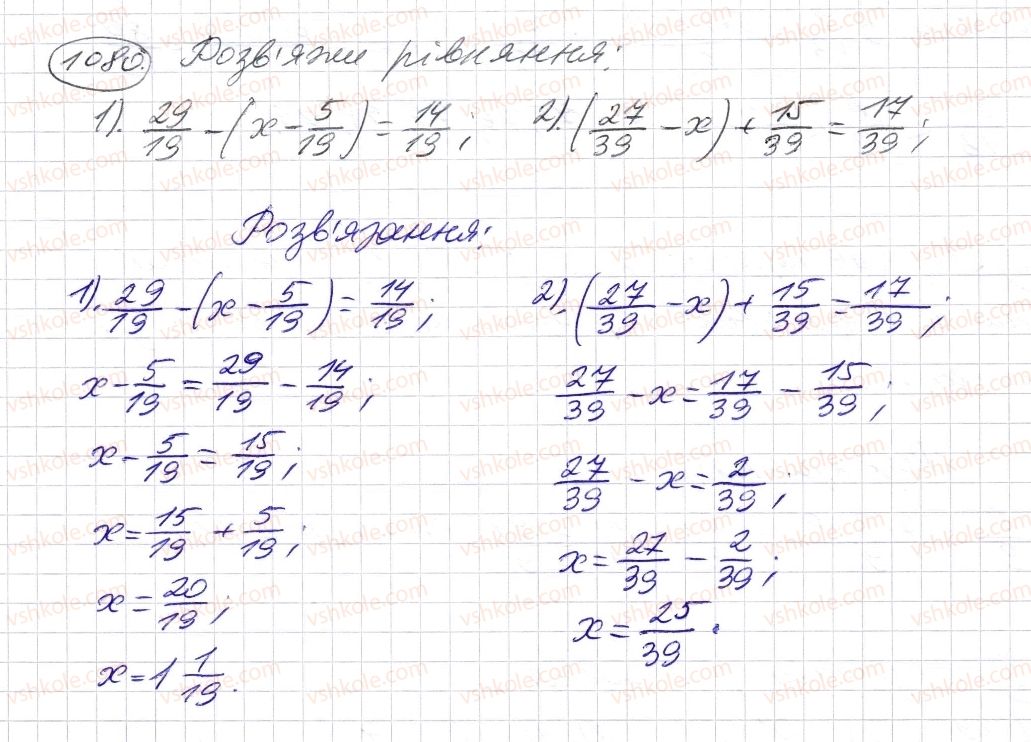 1080. Розв'яжи рівняння:
1). 29/19 - (x - 5/19) = 14/19; 2). (27/39 - x) + 15/39 = 17/39;
Розв'язання:
1). 29/19 - (x - 5/19) = 14/19;
x - 5/19 = 29/19 - 14/19;
x - 5/19 = 15/19;
x = 15/19 + 5/19;
x = 20/19;
x = 1 1/19.
2). (27/39 - x) + 15/39 = 17/39;
27/39 - x = 17/39 - 15/39;
27/39 - x = 2/39;
x = 27/39 - 2/39;
x = 25/39.
vshkole.com